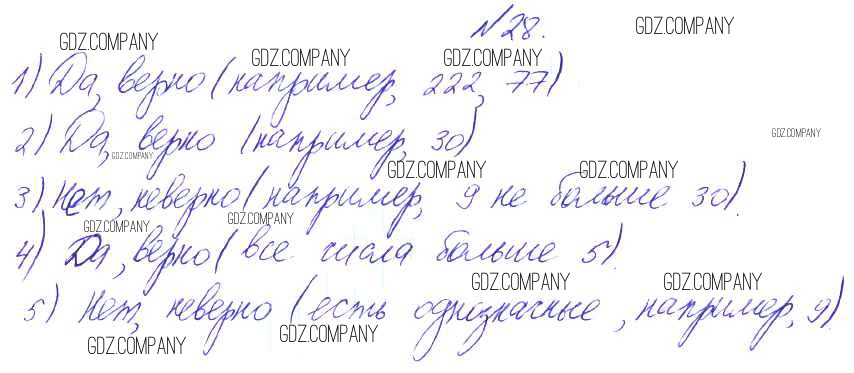 №28.
1) Да, верно (например, 222, 77)
2) Да, верно (например, 30)
3) Нет, неверно (например, 9 не больше 30).
4) Да, верно (все числа больше 5).
5) Нет, неверно (есть однозначные, например, 9).
GDZ.COMPANY
GDZ.COMPANY
GDZ.COMPANY
GDZ.COMPANY
GDZ.COMPANY
GDZ.COMPANY
GDZ.COMPANY
GDZ.COMPANY
GDZ.COMPANY
GDZ.COMPANY
GDZ.COMPANY
GDZ.COMPANY
GDZ.COMPANY
GDZ.COMPANY